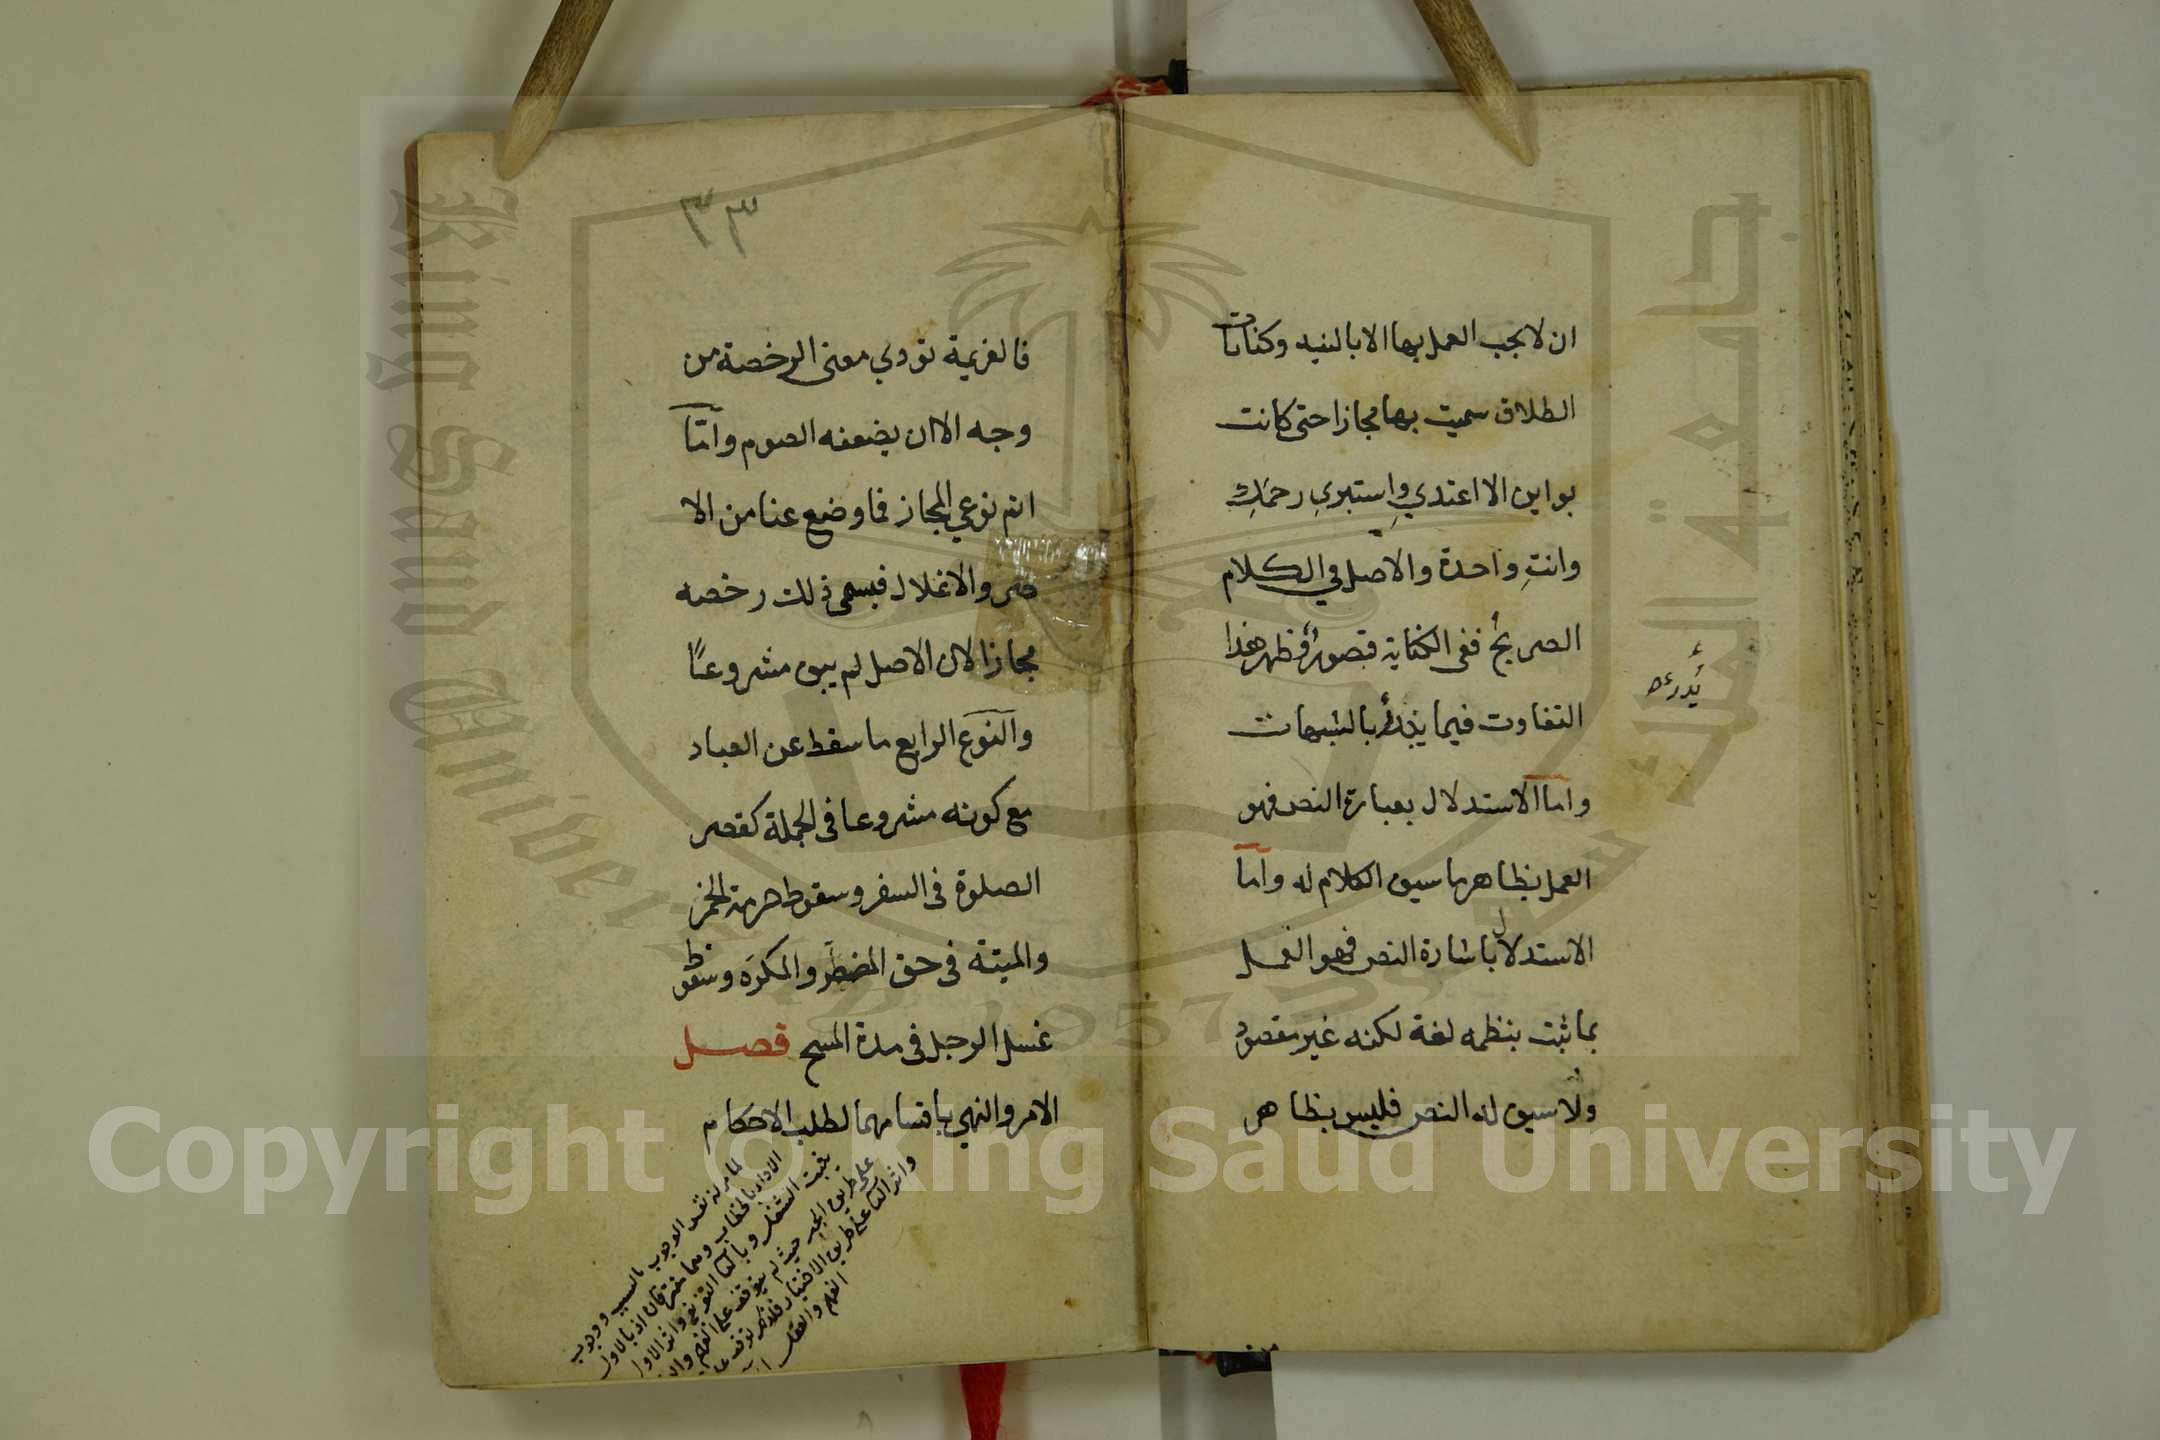 ان لا يجب العمل بها الا بالنيه وكنايات
الطلاق سميت بها مجازا حتى كانت
بواين الا اعتدي واستبري رحمك
وانتِ واحدة والاصل في الكلام
الصريح ففي الكناية قصور وظهر هذا
التفاوت فيما يندرأ بالشبهات
يُدرَء
واما الاستدلال بعبارة النص فهو
العمل بظاهر ما سيق الكلام له واما
الاستدلال باشارة النص فهو العمل
بما ثبت بنظمه لغة لكنه غير مقصود
ولا سيق له النص فليس بظاهر
٣٣
فالعزيمة تودي معنى الرخصة من
وجه الا ان يضعفه الصوم واما
اتم نوعي المجاز فما وضع عنا من الا
صر والاغلال فيسمى ذلك رخصه
مجازا لان الاصل لم يبق مشروعًا
والنوع الرابع ما سقط عن العباد
مع كونه مشروعا في الجملة كقصر
الصلوة في السفر وسقوط حرمة الخمر
والميتة في حق المضطر والمكره وسقوط
غسل الرجل في مدة المسح فصل
الامر والنهي باقسامهما لطلب الاحكام
نفس الوجوب بالسبب ووجوب
الاداء بالخطاب
على طريق الجبر حيث لم يتوقف على الفهم
على طريق الاختيار
الفهم والعقل
King Saud University
جامعة الملك سعود
1957
Copyright © King Saud University